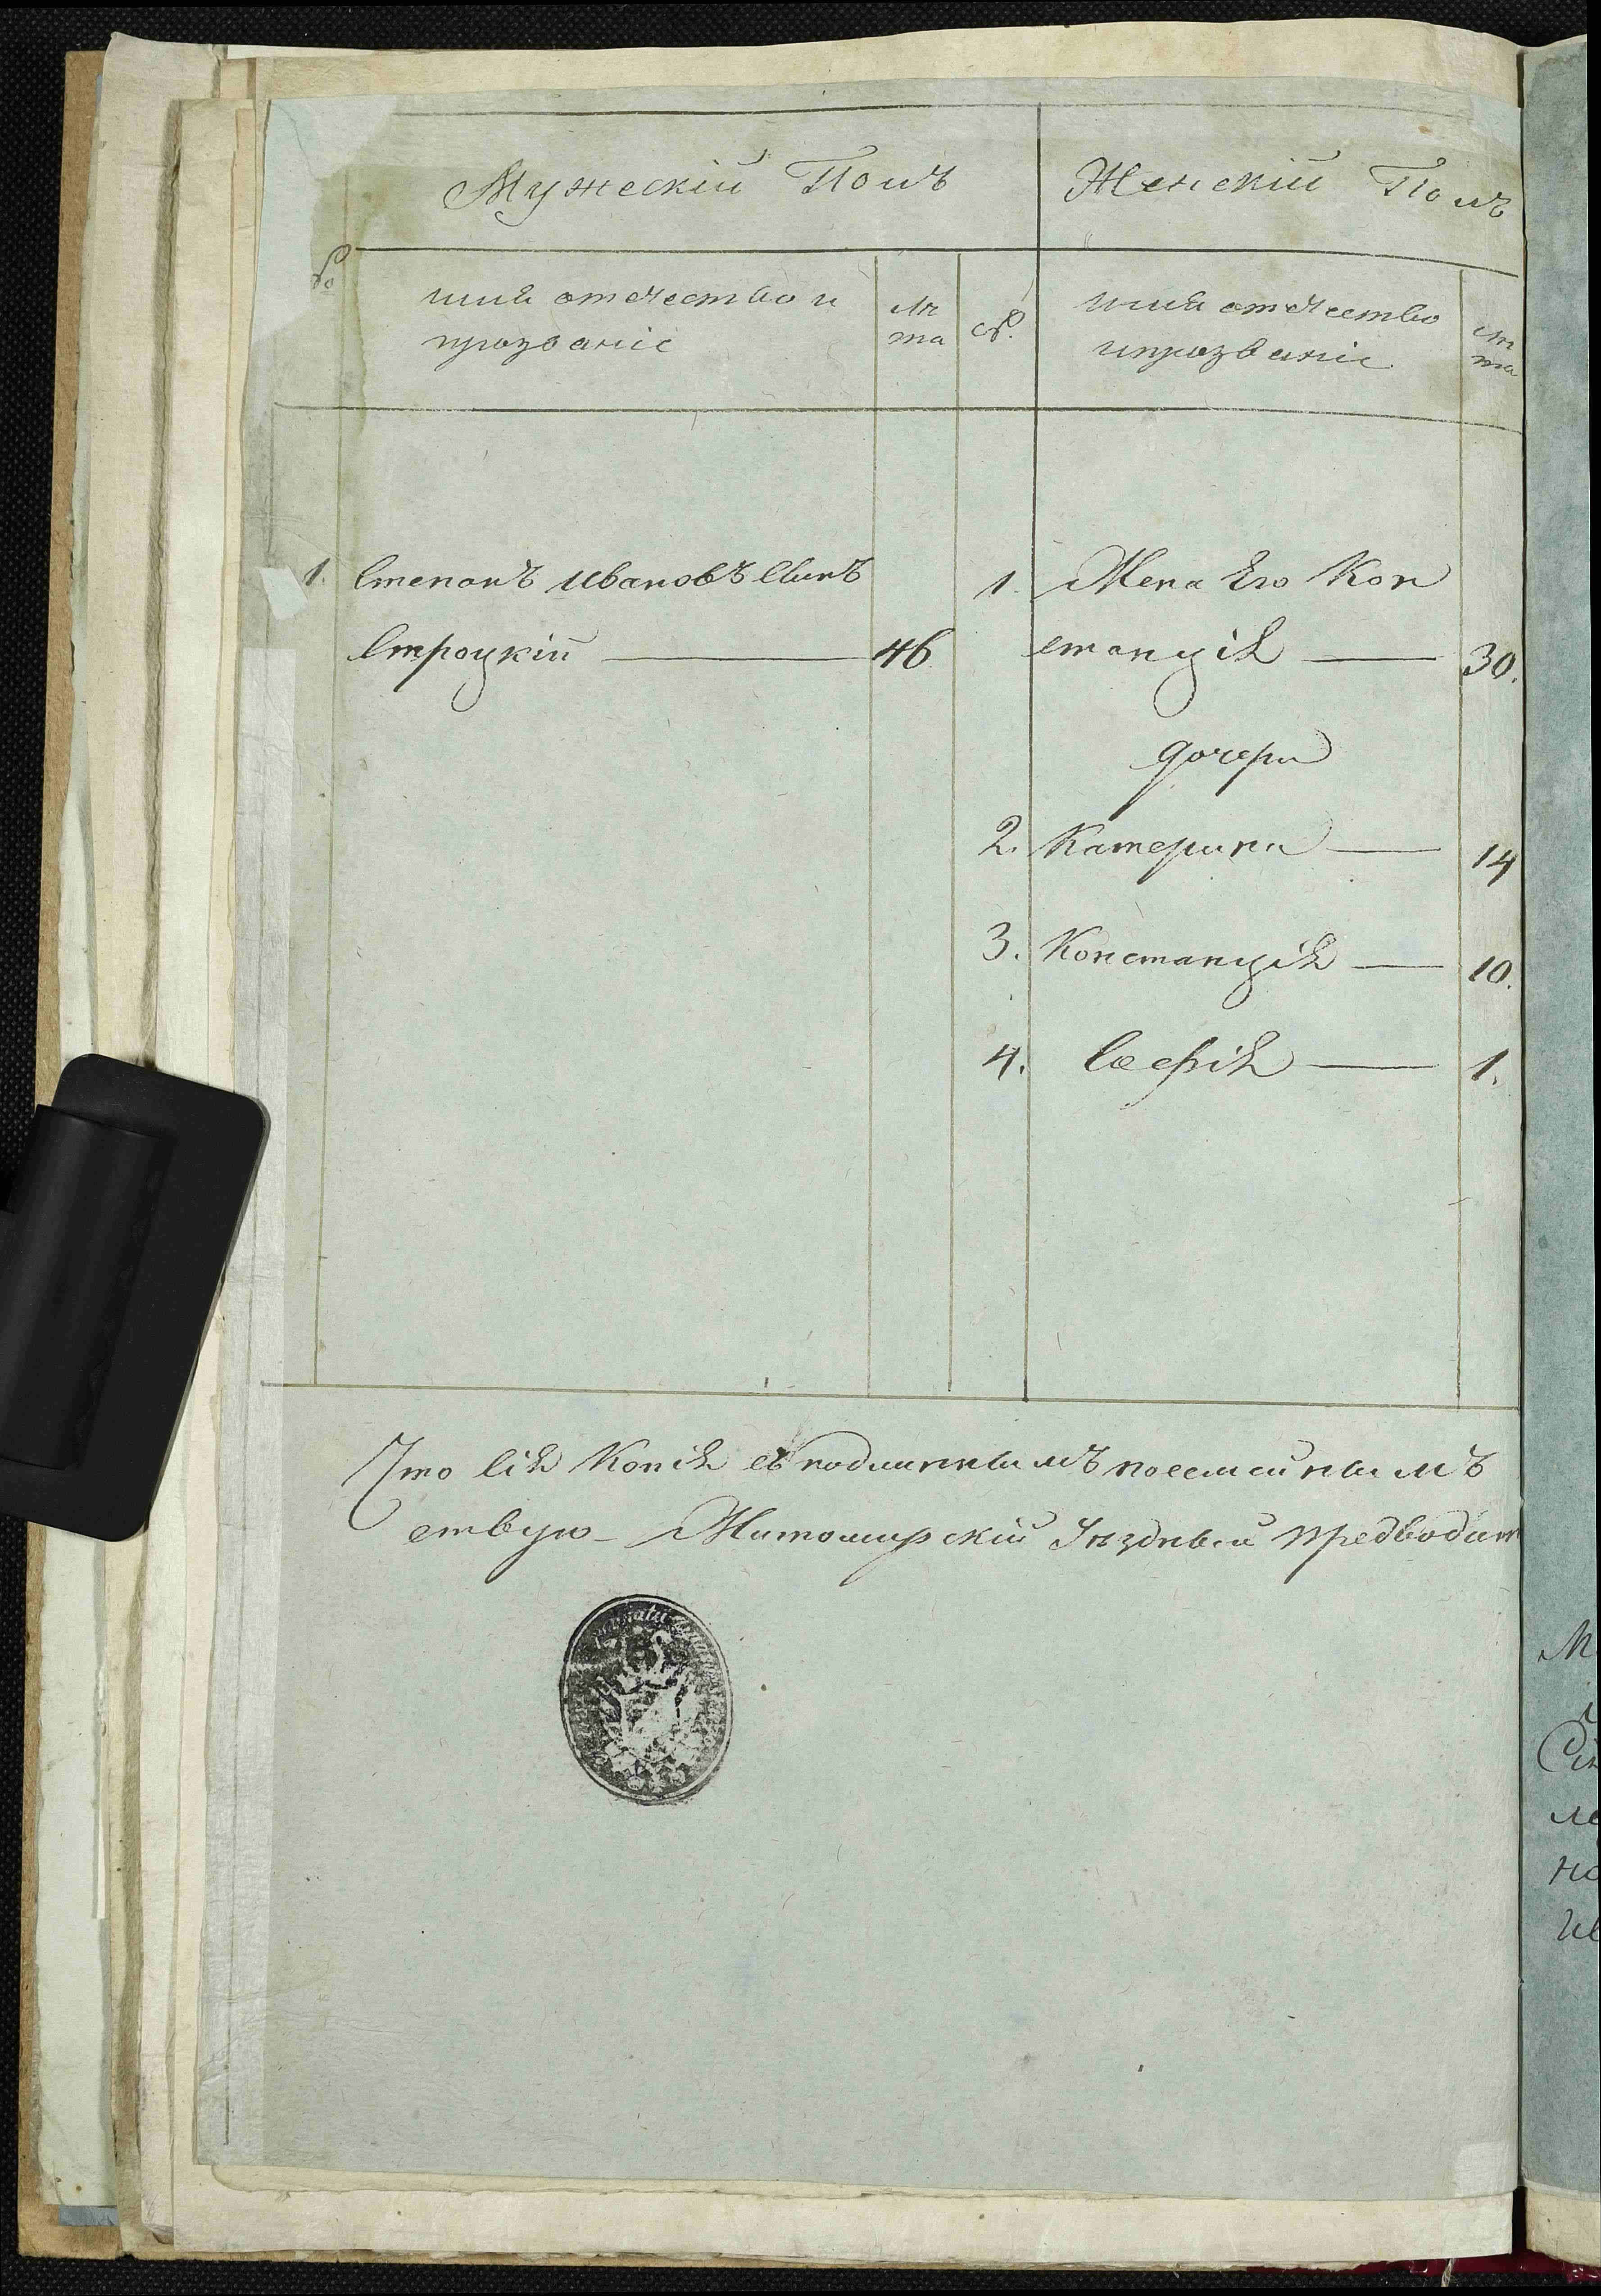 Мужескій Полъ
Женскій Полъ
№
имя отечество и
прозваніе
лѣ
та
№
имя отечество
и прозваніе
лѣ
та
1. Степанъ Ивановъ Сынъ
Строцкій — 46
1. Жена Его Кон
станція — 30.
дочери
2. Катерина — 14
3. Констанція — 10.
4. Софія — 1.
Что сія Копія съ подлиннымъ посемейнымъ
ствую – Житомирскій Уѣздный Предводит